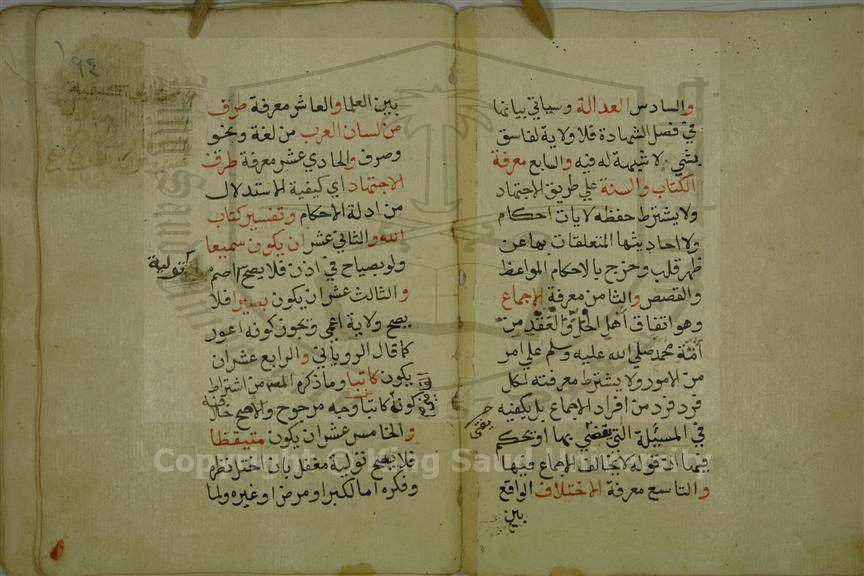 والسادس العدالة وسياتي بيانها
في فصل الشهادة فلا ولاية لفاسق
بشيء لا شبهة له فيه والسابع معرفة
الكتاب والسنة علي طريق الاجتهاد
ولا يشترط حفظه لايات احكام
ولا احاديثها المتعلقات بها عن
ظهر قلب وخرج بالاحكام المواعظ
والقصص والثامن معرفة الاجماع
وهو اتفاق اهل الحل والعقد من
امة محمد صلي الله عليه وسلم علي امر
من الامور ولا يشترط معرفته لكل
فرد فرد من افراد الاجماع بل يكفيه
في المسئلة التي يقضي بها او يحكم
فيها ان قوله لا يخالف الاجماع فيها
والتاسع معرفة الاختلاف الواقع
بين
١٩٤
بين العلما والعاشر معرفة طرف
من لسان العرب من لغة ونحو
وصرف والحادي عشر معرفة طرف
الاجتهاد اي كيفية الاستدلال
من ادلة الاحكام وتفسير كتاب
الله والثاني عشر ان يكون سميعا
ولو بصياح في اذن فلا يصح اصم
تولية
والثالث عشر ان يكون بصيرا فلا
يصح ولاية اعمي ويجوز كونه اعور
كما قال الروياني والرابع عشر ان
يكون كاتبا وما ذكره المصر من اشتراط
كونه كاتبا وجه مرجوح والاصح خلافه
والخامس عشر ان يكون متيقظا
فلا يصح تولية مغفل بان اختل نظره
وفكره اما لكبر او مرض او غيره ولما
Copyright © King Saud University